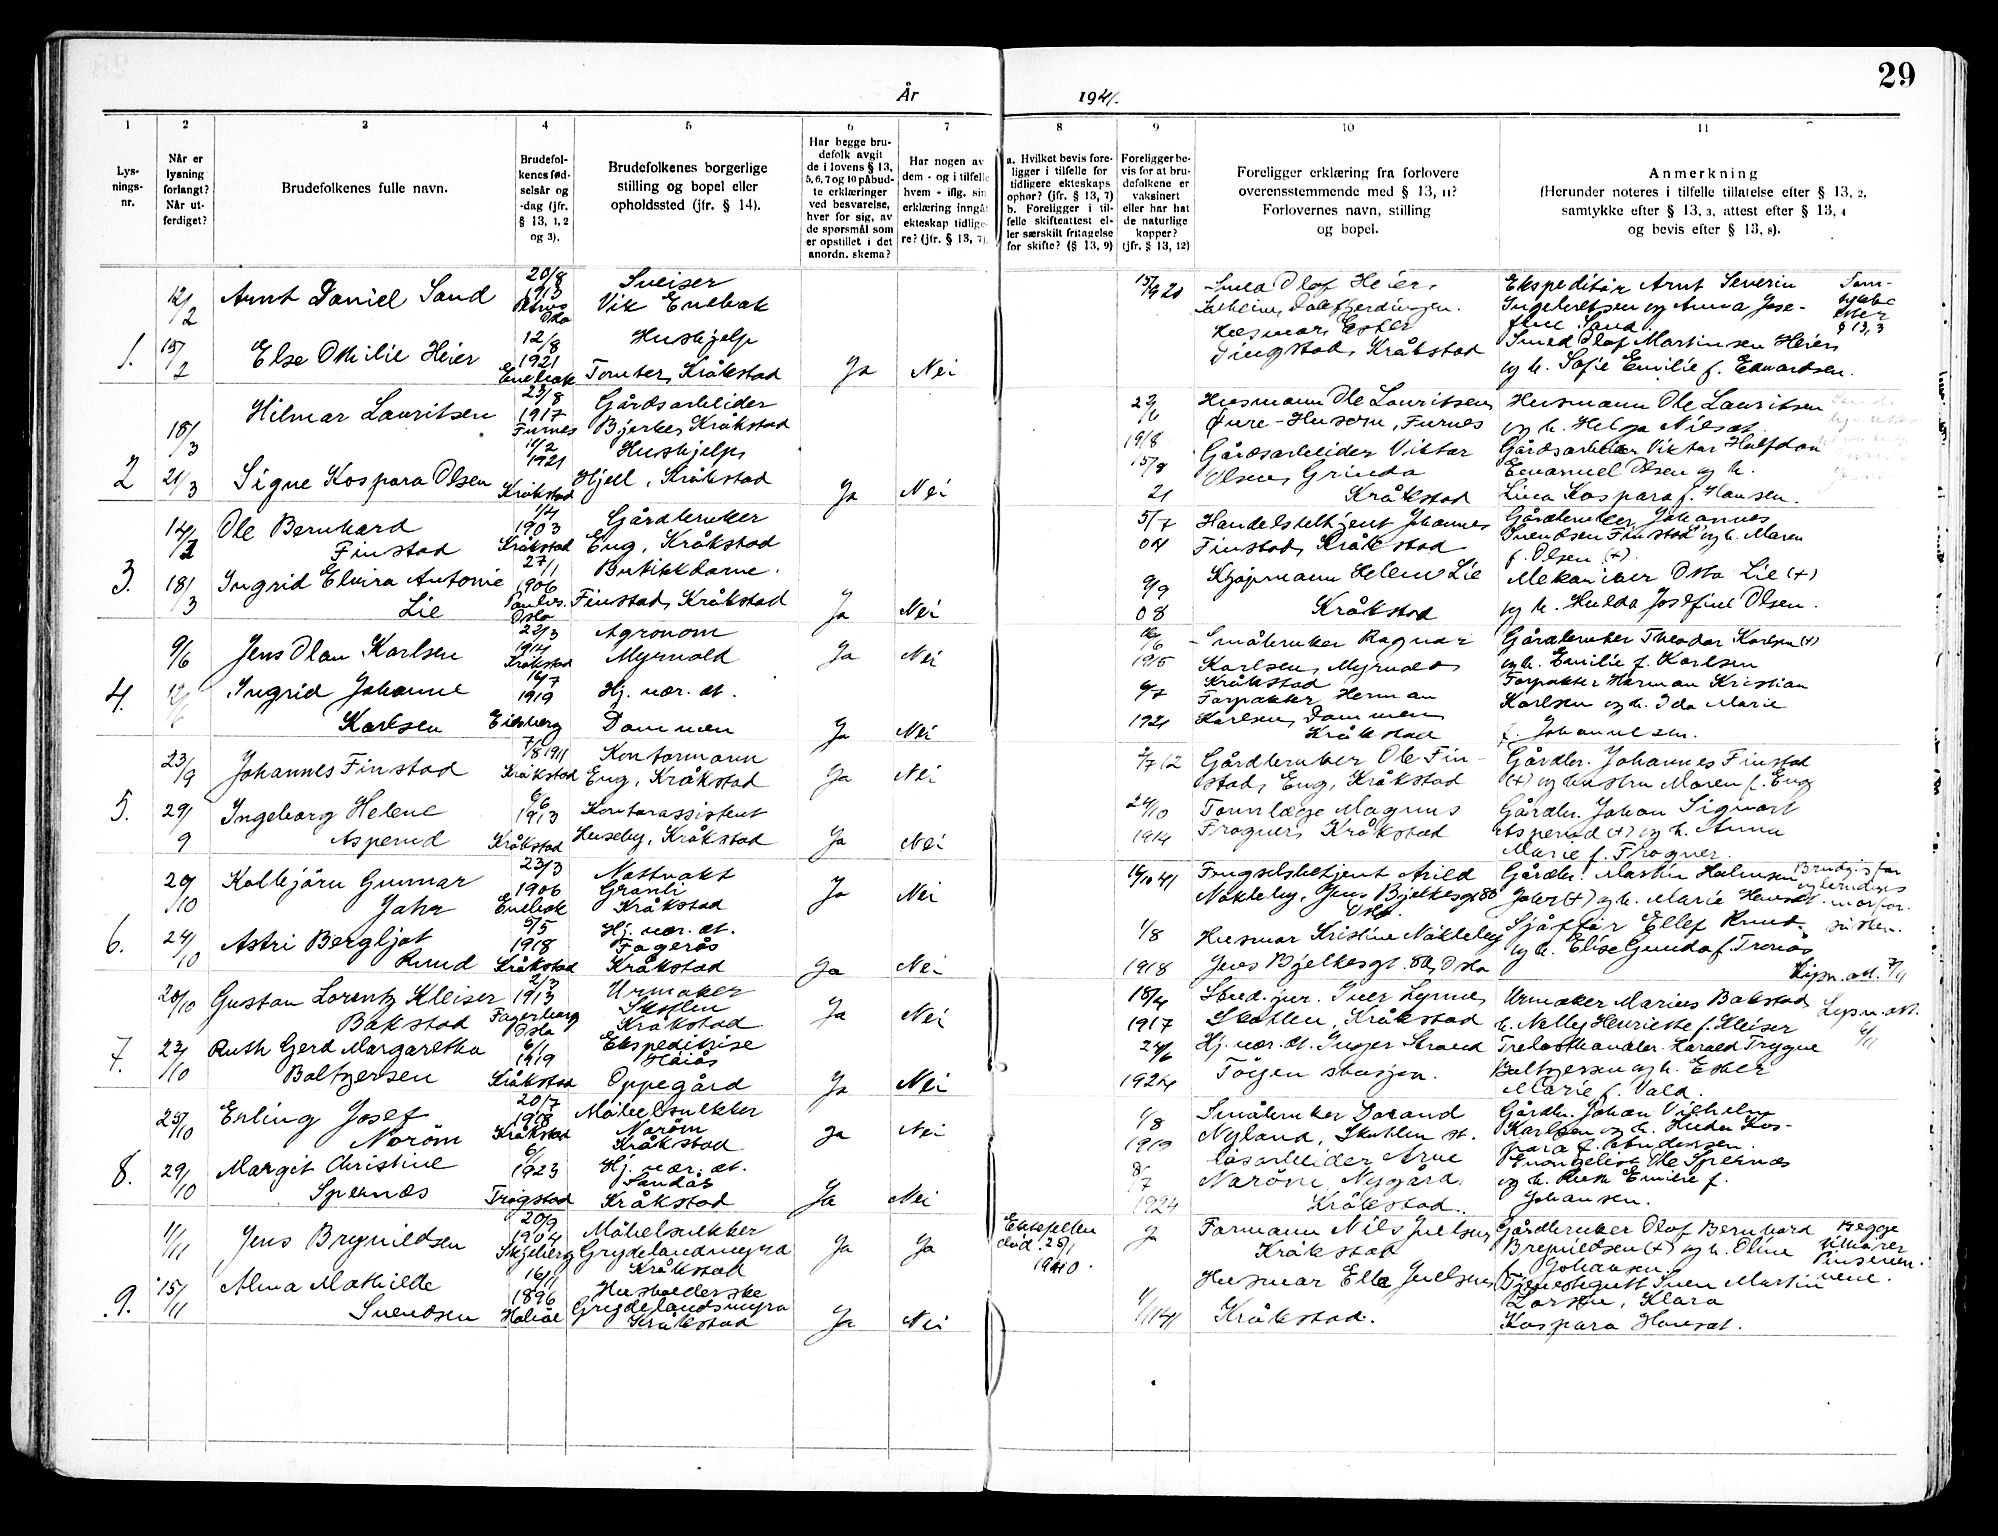 29
År
1941.
1
2
3
4
5
6
7
8
9
10
11
Lys-
nings-
nr.
Når er
lysning
forlangt?
Når ut-
ferdiget?
Brudefolkenes fulle navn.
Brudefol-
kenes fød-
selsår og
-dag (jfr.
§ 13, 1, 2
og 3).
Brudefolkenes borgerlige
stilling og bopel eller
opholdssted (jfr. § 14).
Har begge bru-
defolk avgit
de i lovens § 13,
5, 6, 7 og 10 påbud-
te erklæringer
ved besvarelse,
hver for sig, av
de spørsmål som
er opstillet i det
anordn. skema?
Har nogen av
dem - og i tilfelle
hvem - iflg. sin
erklæring inngåt
ekteskap tidlige-
re? (jfr. § 13, 7).
a. Hvilket bevis fore-
ligger i tilfelle for
tidligere ekteskaps
ophør? (jfr. § 13, 7)
b. Foreligger i til-
felle skifteattest el-
ler særskilt fritagelse
for skifte? (§ 13, 9)
Foreligger be-
vis for at bru-
defolkene er
vaksinert
eller har hat
de naturlige
kopper?
(jfr. § 13, 12)
Foreligger erklæring fra forlovere
overensstemmende med § 13, 11?
Forlovernes navn, stilling
og bopel.
Anmerkning
(Herunder noteres i tilfelle tillatelse efter § 13, 2,
samtykke efter § 13, 3, attest efter § 13, 4
og bevis efter § 13, 8).
1.
12/2
15/2
Arnt Daniel Sand
20/8
1913
Oslo
Sveiser
Vik Enebak
Else Othilie Heier
12/8
1921
Enebak
Hushjelp
Tomter, Kråkstad
Ja
Nei
15/9 21
Smed Olof Heier,
Husmor Ester
Tingstad, Kråkstad
Ekspeditør Arnt Severin
Ingebretsen og Anna Jose-
fine Sand.
Smed Olof Martinsen Heier
og h. Sofie Emilie f. Edvardsen.
Sam-
tykke
efter
§ 13,3
2
18/3
21/3
Hilmar Lauritsen
23/8
1917
Furnes
Gårdsarbeider
Bjerke, Kråkstad
Signe Kaspara Olsen
1921
Kråkstad
Hushjelp
Hjell, Kråkstad
Ja
Nei
1918
15/8
21
Husmann Ole Lauritsen,
Øvre-Husom, Furnes
Gårdsarbeider Viktor
Olsen, Grinda
Kråkstad
Husmann Ole Lauritsen
og h. Helga Nilsdt.
Gårdsarbeider Viktor Halfdan
Emanuel Olsen og h.
Lina Kaspara f. Hansen.
3.
18/3
Ole Bernhard
Finstad
1/4
1903
Kråkstad
Gårdbruker
Eng, Kråkstad
Ingrid Elvira Antonie
Lie
27/1
1906
Paulus.
Oslo
Butikkdame.
Finstad, Kråkstad
Ja
Nei
5/7
04
9/9
08
Handelsbetjent Johannes
Finstad, Kråkstad
Kjøpmann Helene Lie
Kråkstad
Gårdbruker Johannes
Svendsen Finstad og h. Maren
f. Olsen (+).
Mekaniker Otto Lie (+)
og h. Hulda Josefine Olsen.
4.
9/6
12/6
Jens Olav Karlsen
22/3
1914
Kråkstad
Agronom
Myrvold
Ja
Nei
Ingrid Johanne
Karlsen
16/7
1919
Eidsberg
Hj. vær. dt.
Dammen
Ja
Nei
1915
6/7
1921
Småbruker Ragnar
Karlsen, Myrvold,
Kråkstad
Forpakter Herman
Karlsen, Dammen
Kråkstad
Gårdbruker Theodor Karlsen (+)
og h. Emilie f. Karlsen
Forpakter Herman Kristian
Karlsen og h. Ida Marie
f. Johannesen.
5.
23/9
29/9
Johannes Finstad
7/8 1911
Kråkstad
Kontormann
Eng, Kråkstad
Ja
Nei
Ingeborg Helene
Asperud
6/6
1913
Kråkstad
Kontorassistent
Huseby, Kråkstad
Ja
Nei
2/7 12
24/10
1914
Gårdbruker Ole Fin-
stad, Eng, Kråkstad
Tannlæge Magnus
Frogner, Kråkstad
Gårdbr. Johannes Finstad
(+) og hustru Maren f. Eng
Gårdbr. Johan Sigvart
Asperud (+) og h. Anna
Marie f. Frogner.
6.
20/10
24/10
Kolbjørn Gunnar
Jaher
23/3
1906
Enebak
Nattvakt
Granli
Kråkstad
Ja
Nei
Astri Bergljot
Ruud
5/5
1918
Kråkstad
Hj. vær. dt.
Fagerås
Kråkstad
Ja
Nei
14/10 41
1/8
1918
Fengselsbetjent Arild
Nakleby, Jens Bjelkesgt 80
Oslo.
Husmor Kristine Nakleby
Jens Bjelkesgt. 80, Oslo
Gårdbr. Martin Halvorsen
Jaher (+) og h. Marie Hansdt.
Sjåffør Ellef Ruud
og h. Elise Gunda f. Tronås
Brudgs far
og brudens
morfor.
søsken.
Lysn. att. 7/11
7.
20/10
23/10
Gustav Lorentz Kleiser
Bakstad
2/3
1913
Fagerborg
Oslo
Urmaker
Skotbu
Kråkstad
Ja
Nei
Ruth Gerd Margaretha
Baltzersen
6/1
1919
Kråkstad
Ekspeditrise
Oppegård
Ja
Nei
18/4
1917
24/6
1924
Stud. jur. Iver Lynne,
Skotbu, Kråkstad
Hj. vær. dt. Inger Strand
Tøien stasjon.
Urmaker Marius Bakstad
h. Nelly Henriette f. Kleiser
Trelasthandler Harald Trygve
Baltzersen og h. Ester
Marie f. Vold.
Lysn. att.
6/11
8.
25/10
29/10
Erling Josef
Narøm
20/7
1918
Kråkstad
Møbelsnekker
Narøm
Kråkstad
Ja
Nei
Margit Christine
Spernæs
6/1
1923
Trøgstad
Hj. vær. dt.
Sandås
Kråkstad
Ja
Nei
1/8
1919
8/7
1924
Småbruker
Nyland, Skotbu st.
Arne
Narøm, Nygård,
Kråkstad.
Gårdbr. Johan Vilhelm
Karlsen og h. Hulda Kas-
para f. Andersen.
Evangelist Ole Spernæs
og h. Ruth Emilie f.
Johansen.
9.
1/11
15/11
Jens Brynildsen
20/9
1904
Skjeberg
Møbelsnekker
Grydelandsmyra
Kråkstad
Ja
Ja
Ektefellen
død 25/1
1940.
Alma Mathilde
Svendsen
16/11
1896
Hobøl
Husholderske
Grydelandsmyra
Kråkstad
Ja
Nei
Ja
1/11 41
Formann Nils Juelsen,
Kråkstad
Husmor Ella Juelsen,
Kråkstad.
Gårdbruker Olof Bernhard
Brynildsen (+) og h. Oline
f. Johansen.
Tjenestegutt Sven Martin
Larsen, Klara
Kaspara Hansdt.
Begge
tilhører
Pinseven-
nene.